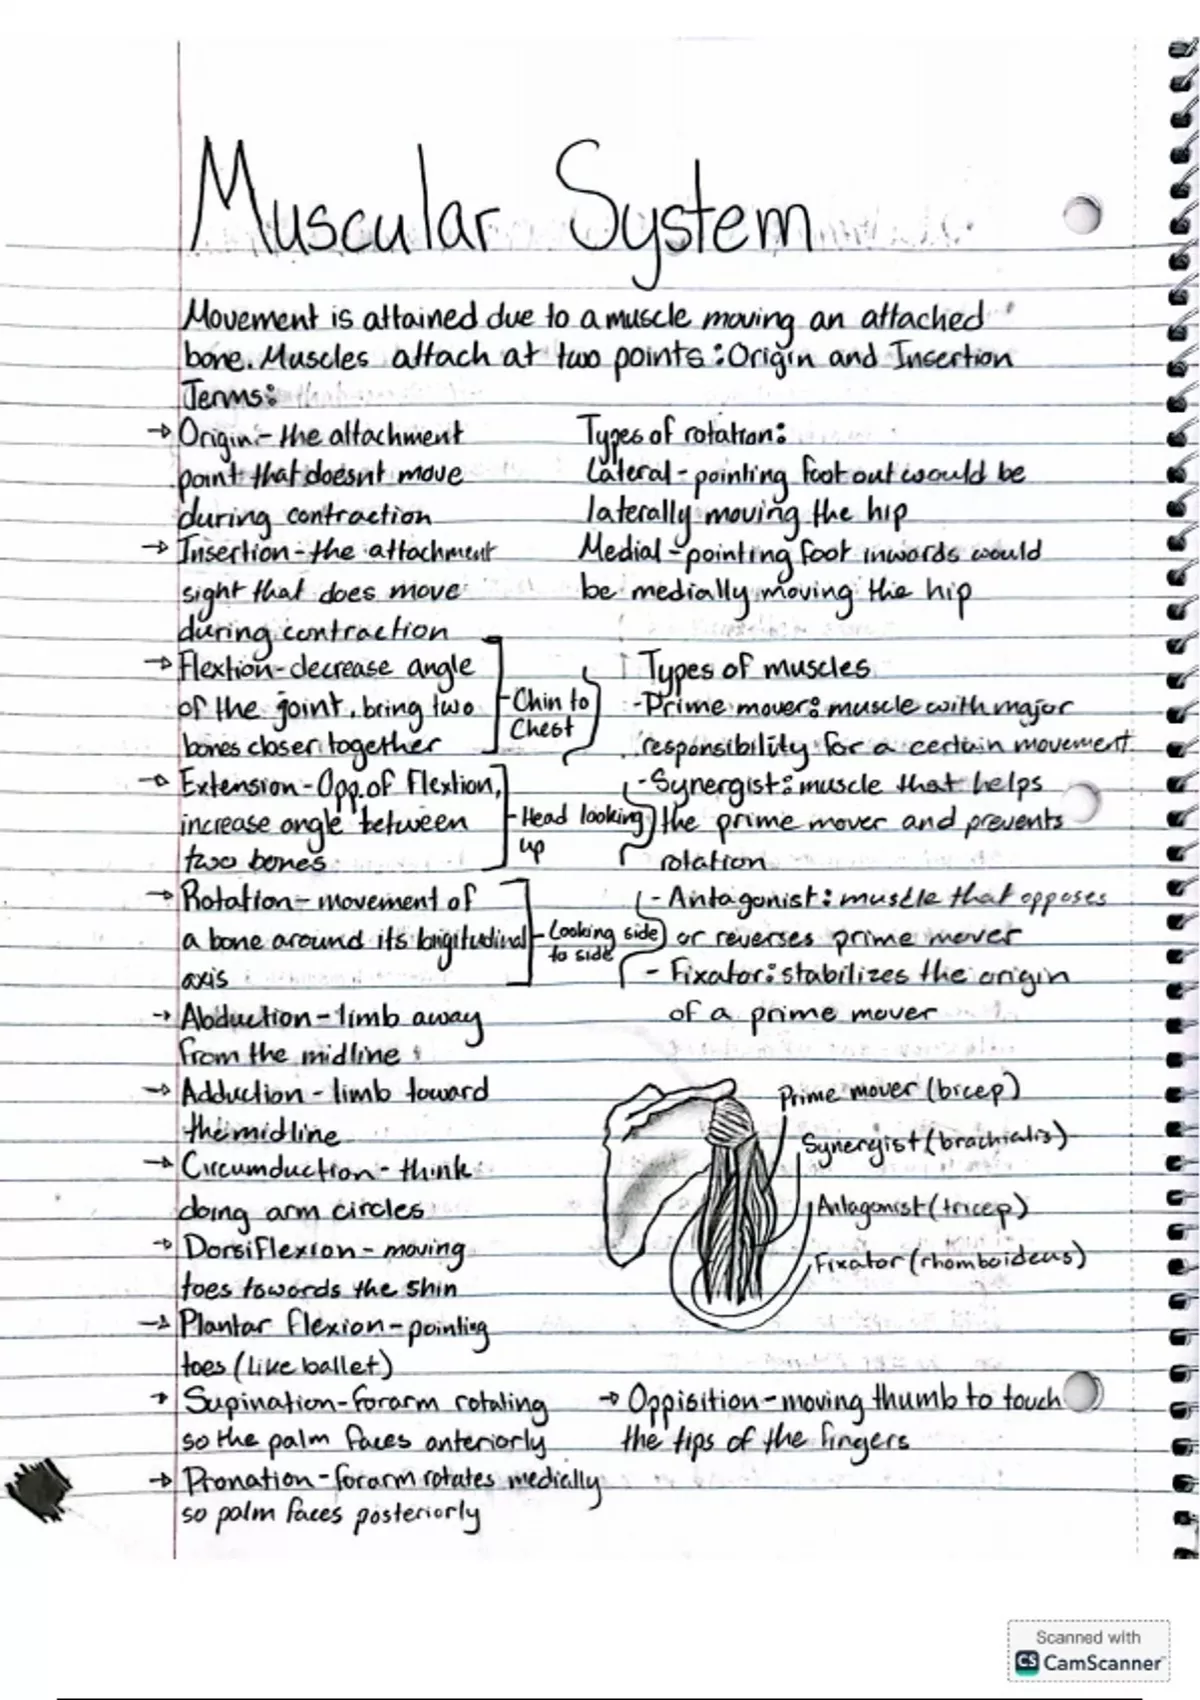 Muscular System
Movement is attained due to a muscle moving an attached
bone. Muscles attach at two points: Origin and Insertion
Terms:
→ Origin - the attachment
point that doesnt move
during contraction
→ Insertion - the attachment
sight that does move
during contraction
→ Flextion - decrease angle
of the joint, bring two
bones closer together
Chin to
Chest
→ Extension - Opp. of Flextion,
increase angle between
two bones
Head looking
up
→ Rotation - movement of
a bone around its longitudinal
axis
Looking side
to side
→ Abduction - limb away
from the midline
→ Adduction - limb toward
the midline
→ Circumduction - think
doing arm circles
→ Dorsiflexion - moving
toes towards the shin
→ Plantar flexion - pointing
toes (like ballet)
→ Supination - forarm rotating
so the palm faces anteriorly
→ Pronation - forarm rotates medially
so palm faces posteriorly
Types of rotation:
Lateral - pointing foot out would be
laterally moving the hip
Medial - pointing foot inwards would
be medially moving the hip
Types of muscles
- Prime mover: muscle with major
responsibility for a certain movement
- Synergist: muscle that helps
the prime mover and prevents
rotation
- Antagonist: muscle that opposes
or reverses prime mover
- Fixator: stabilizes the origin
of a prime mover
Prime mover (bicep)
Synergist (brachialis)
Antagonist (tricep)
Fixator (rhomboideus)
→ Oppisition - moving thumb to touch
the tips of the fingers
Scanned with
CS CamScanner